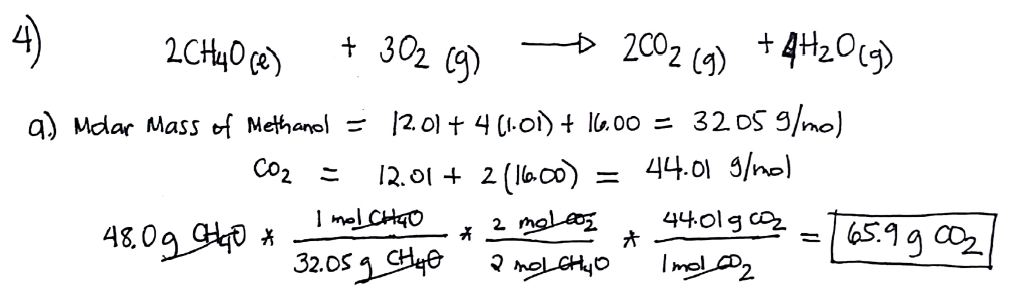 4) 2CH4O(l) + 3O2 (g) → 2CO2 (g) + 4H2O(g)
a.) Molar Mass of Methanol = 12.01 + 4(1.01) + 16.00 = 32.05 g/mol
CO2 = 12.01 + 2(16.00) = 44.01 g/mol
48.0g CH4O * 1 mol CH4O / 32.05 g CH4O * 2 mol CO2 / 2 mol CH4O * 44.01g CO2 / 1 mol CO2 = 65.9 g CO2